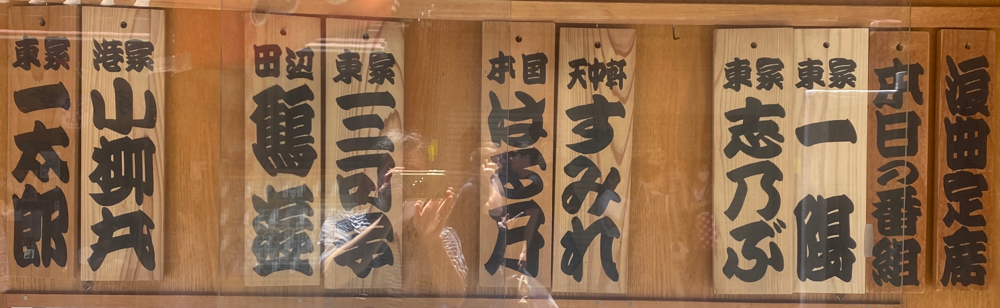 浪曲定席
本日の番組
東家
一陽
東家
志乃ぶ
天中軒
すみれ
国本
はる乃
東家
三可子
田辺
港家
小柳丸
東家
一太郎